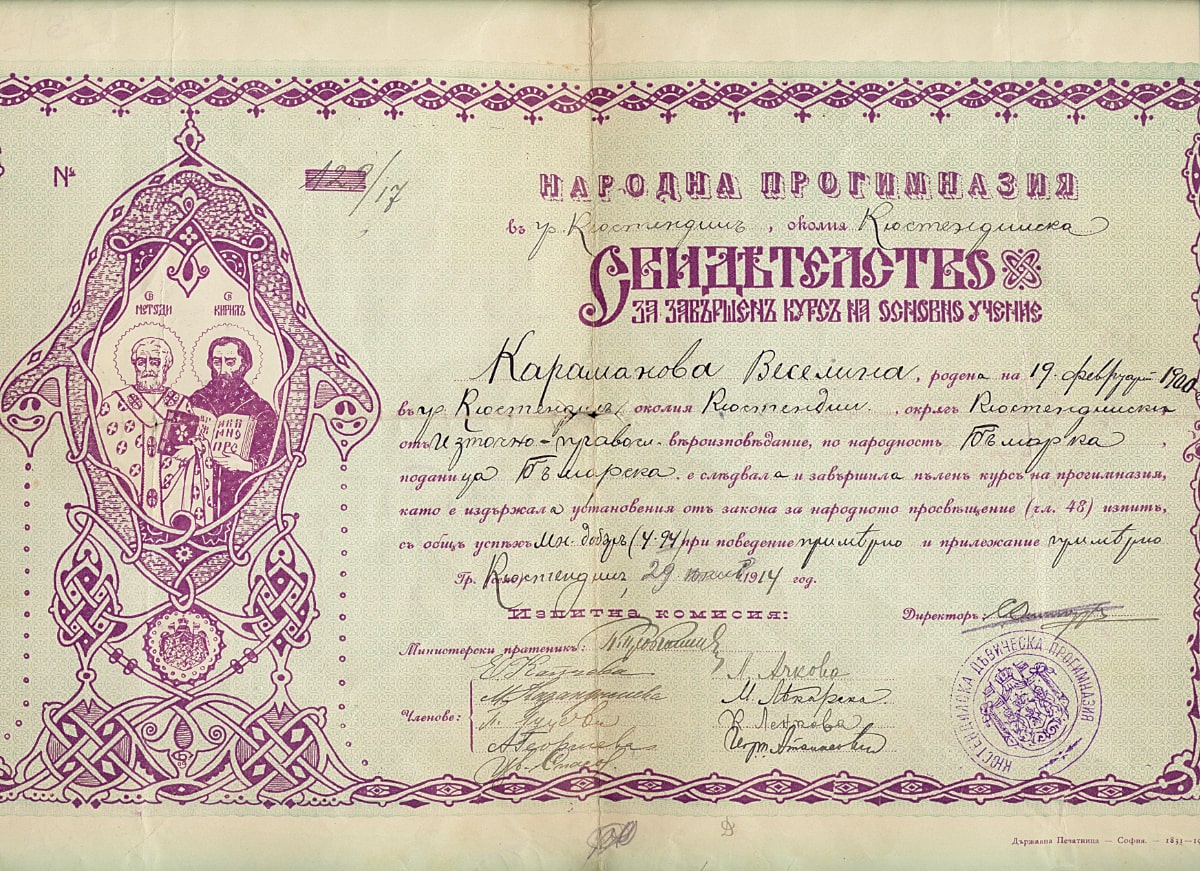 № 122/17
НАРОДНА ПРОГИМНАЗИЯ
въ гр. Кюстендилъ, околия Кюстендилска
СВИДѢТЕЛСТВО
ЗА ЗАВЪРШЕНЪ КУРСЪ НА ОСНОВНО УЧЕНИЕ
СВ МЕТОДИ
СВ КИРИЛЪ
Караманова Веселина, родена на 19. февруарий 1900
въ гр. Кюстендилъ, околия Кюстендил., окрягъ Кюстендилски
отъ Източно-правосл. вѣроизповѣдание, по народность Бъларка,
поданица Бъларска. е слѣдвала и завършила пъленъ курсъ на прогимназия,
като е издържала установения отъ закона за народното просвѣщение (чл. 48) изпитъ,
съ общъ успѣхъ Мн. добъръ (4.94) при поведение примѣрно и прилежание примѣрно
Гр. Кюстендилъ, 29 1914 год.
ИЗПИТНА КОМИСИЯ:
Директоръ:
Министерски пратеникъ:
Членове:
Л. Ачкова
М. Лѣкарска.
А. Георгиева
КЮСТЕНДИЛСКА ДѢВИЧЕСКА ПРОГИМНАЗИЯ
Държавна Печатница — София. — 1833—19